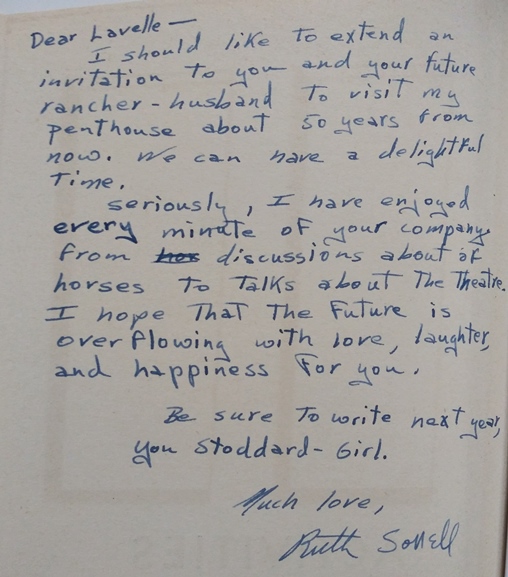 Dear Lavelle —
I should like to extend an
invitation to you and your future
rancher - husband to visit my
penthouse about 50 years from
now. We can have a delightful
time.
seriously, I have enjoyed
every minute of your company
from hos discussions about of
horses to talks about the theatre.
I hope that the future is
overflowing with love, laughter,
and happiness for you.
Be sure to write next year,
you Stoddard - Girl.
Much love,
Ruth